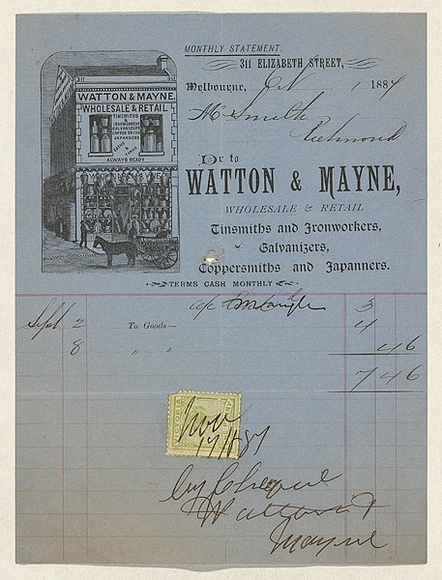 MONTHLY STATEMENT.
311 ELIZABETH STREET,
Melbourne, Oct 1 1887
Mr Smith
Richmond
Dr to
WATTON & MAYNE,
WHOLESALE & RETAIL
Tinsmiths and Ironworkers,
Galvanizers,
Coppersmiths and Japanners.
TERMS CASH MONTHLY
311 311
WATTON & MAYNE.
WHOLESALE & RETAIL
TINSMITHS
& IRONWORKERS
GALVANIZERS
COPPERSMITHS
JAPANNERS
ALWAYS READY
a/c rendered 3
Sept 2 To Goods— 4
8 " " 4 6
7 4 6
VICTORIA
Nov
17/11/87
by Cheque
Watton &
Mayne